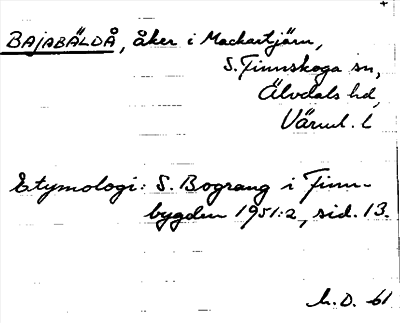 +
BAJABÄLDÅ, åker i Mackartjärn,
S. Finnskoga sn,
Älvdals hd,
Värml. l
Etymologi: S. Bograng i Finn-
bygden 1951:2, sid. 13.
h.D. 61